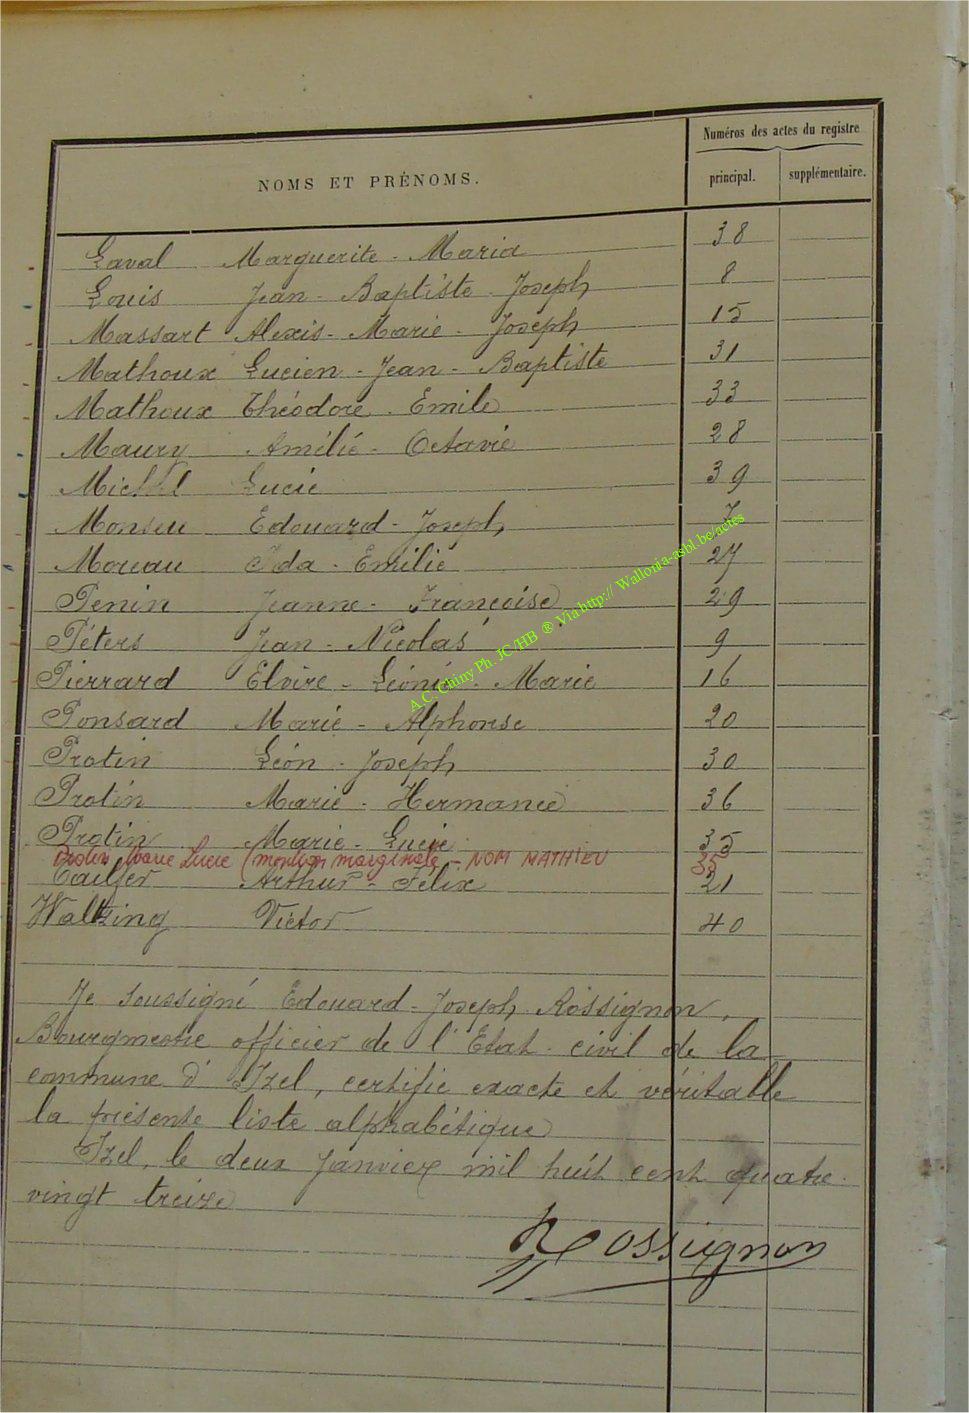 Numéros des actes du registre
NOMS ET PRÉNOMS.
principal. supplémentaire.
Laval Marguerite - Maria 38
Louis Jean - Baptiste - Joseph 8
Massart Alexis - Marie - Joseph 15
Mathoux Lucien - Jean - Baptiste 31
Mathoux Théodore - Emile 33
Maury Amélie - Octavie 28
Michel Lucie 39
Monseu Edouard - Joseph 7
Moreau Ida - Emilie 27
Penin Jeanne - Françoise 29
Péters Jean - Nicolas 9
Pierrard Elvire - Léonie - Marie 16
Ponsard Marie - Alphonse 20
Protin Léon - Joseph 30
Protin Marie - Hermance 36
Protin Marie - Lucie 35
Protin Marie Lucie (mention marginale - NOM MATHIEU 35
Tailfer Arthur - Félix 21
Waltzing Victor 40
Je soussigné Edouard - Joseph Rossignon,
Bourgmestre officier de l'Etat - civil de la
commune d'Izel, certifie exacte et véritable
la présente liste alphabétique
Izel, le deux Janvier mil huit cent quatre -
vingt treize
Rossignon
A.C. Chiny Ph. JC/HB ® Via http:// Wallonia-asbl.be/actes